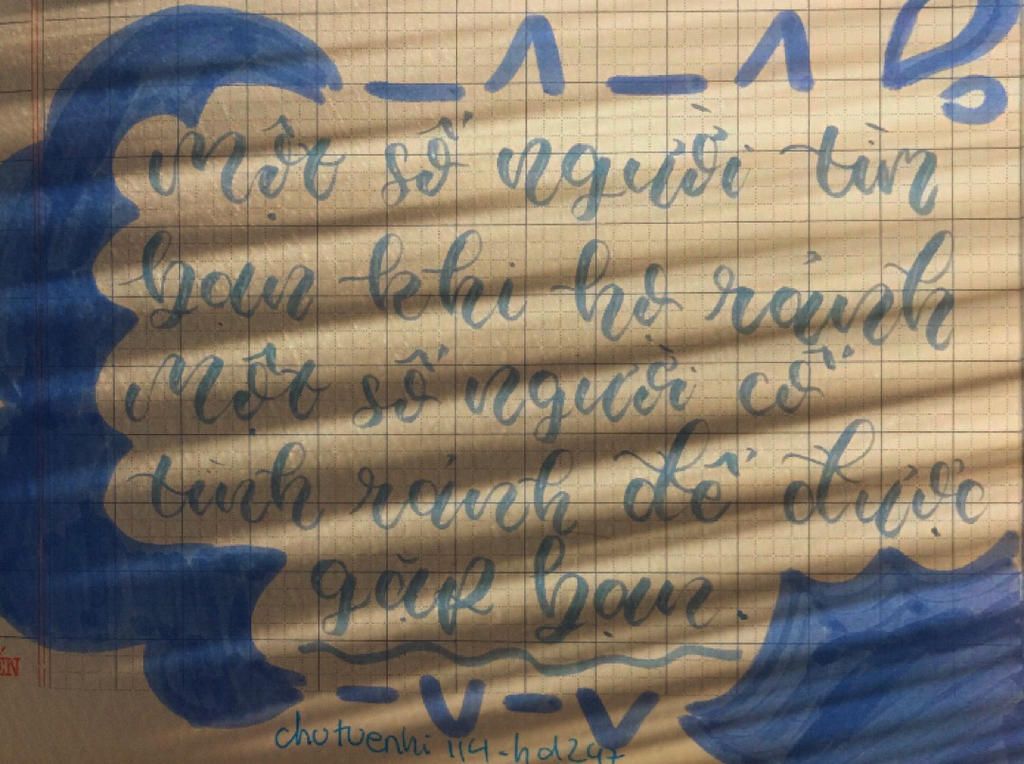 Một số người tìm
bạn khi họ rảnh
Một số người cố
tình rảnh để được
gặp bạn.
ẾN
chutuenhi 114-hd247